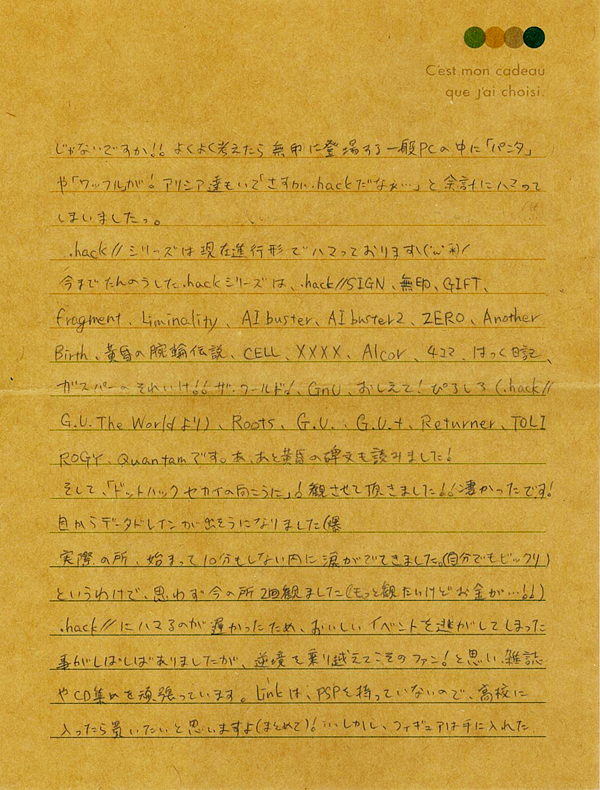 C'est mon cadeau
que j'ai choisi.
じゃないですか!! よくよく考えたら無印に登場する一般PCの中に「パンタ」
や「ワッフル」が! アリシア達もいて「さすが.hackだなぁ…」と余計にハマって
しまいましたっ。
.hack//シリーズは現在進行形でハマっております\(^ω^*)/
今までたんのうした.hackシリーズは、.hack//SIGN、無印、GIFT、
fragment、Liminality、AI buster、AI buster2、ZERO、Another
Birth、黄昏の腕輪伝説、CELL、XXXX、Alcor、4コマ、はっく日記、
ガスパーのそれいけ!! ザ・ワールド!、GnU、おしえて!ぴろしろ(.hack//
G.U. The Worldより)、Roots、G.U.、G.U.+、Returner、TOLI
ROGY、Quantamです。あ、あと黄昏の碑文も読みました!
そして、「ドットハック セカイの向こうに」!観させて頂きました!!凄かったです!
目からデータドレインが出そうになりました(爆
実際の所、始まって10分もしない内に涙がでてきました。(自分でもビックリ)
というわけで、思わず今の所2回観ました(もっと観たいけどお金が…!!)
.hack//にハマるのが遅かったため、おいしいイベントを逃がしてしまった
事がしばしばありましたが、逆境を乗り越えてこそのファン!と思い、雑誌
やCD集めを頑張っています。Linkは、PSPを持っていないので、高校に
入ったら買いたいと思いますよ(まとめて)! しかし、フィギュアは手に入れた